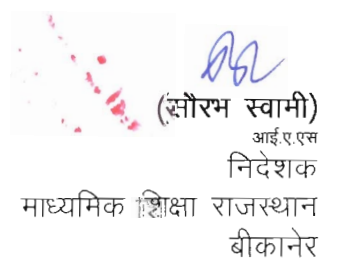 (सौरभ स्वामी)
आई.ए.एस
निदेशक
माध्यमिक शिक्षा राजस्थान
बीकानेर